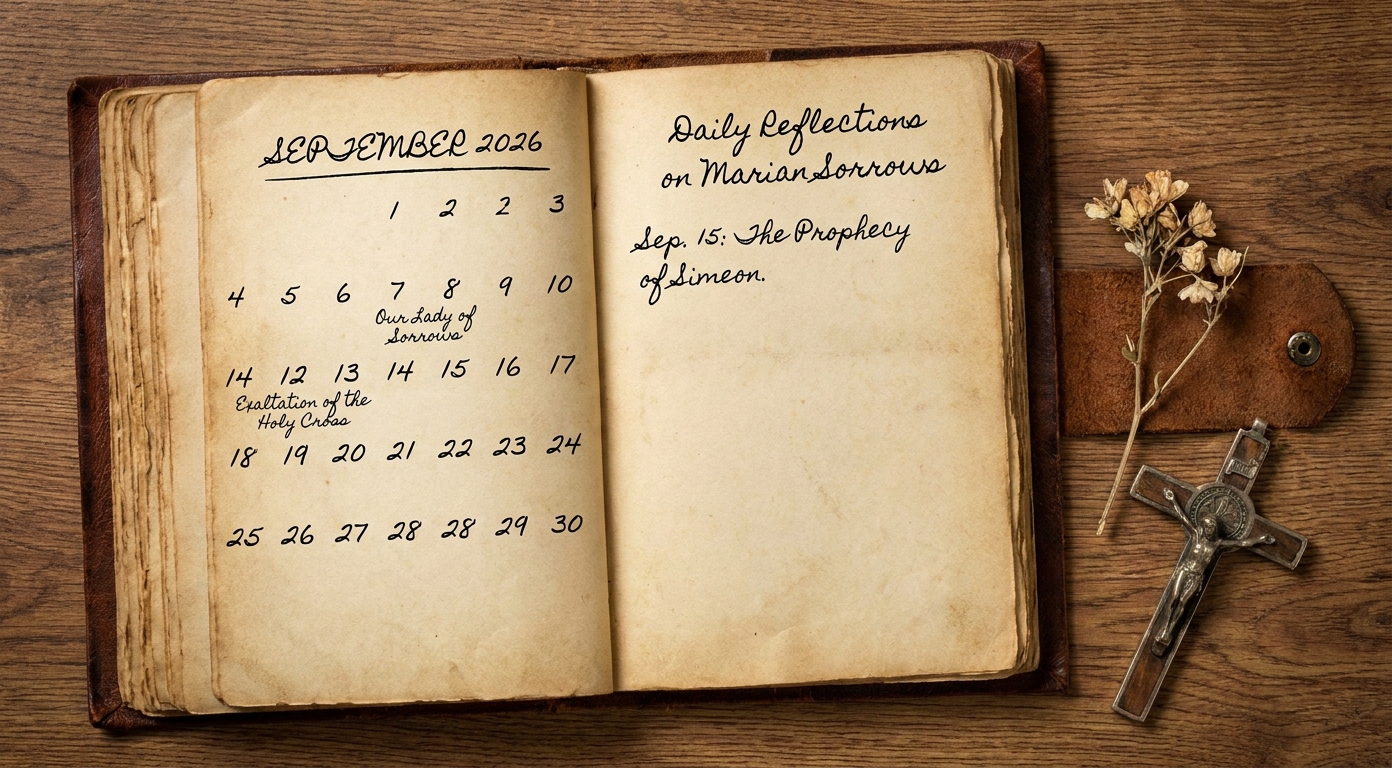 SEPTEMBER 2026
1 2 2 3
4 5 6 7 8 9 10
Our Lady of
Sorrows
14 12 13 14 15 16 17
Exaltation of the
Holy Cross
18 19 20 21 22 23 24
25 26 27 28 28 29 30
Daily Reflections
on Marian Sorrows
Sep. 15: The Prophecy
of Simeon.